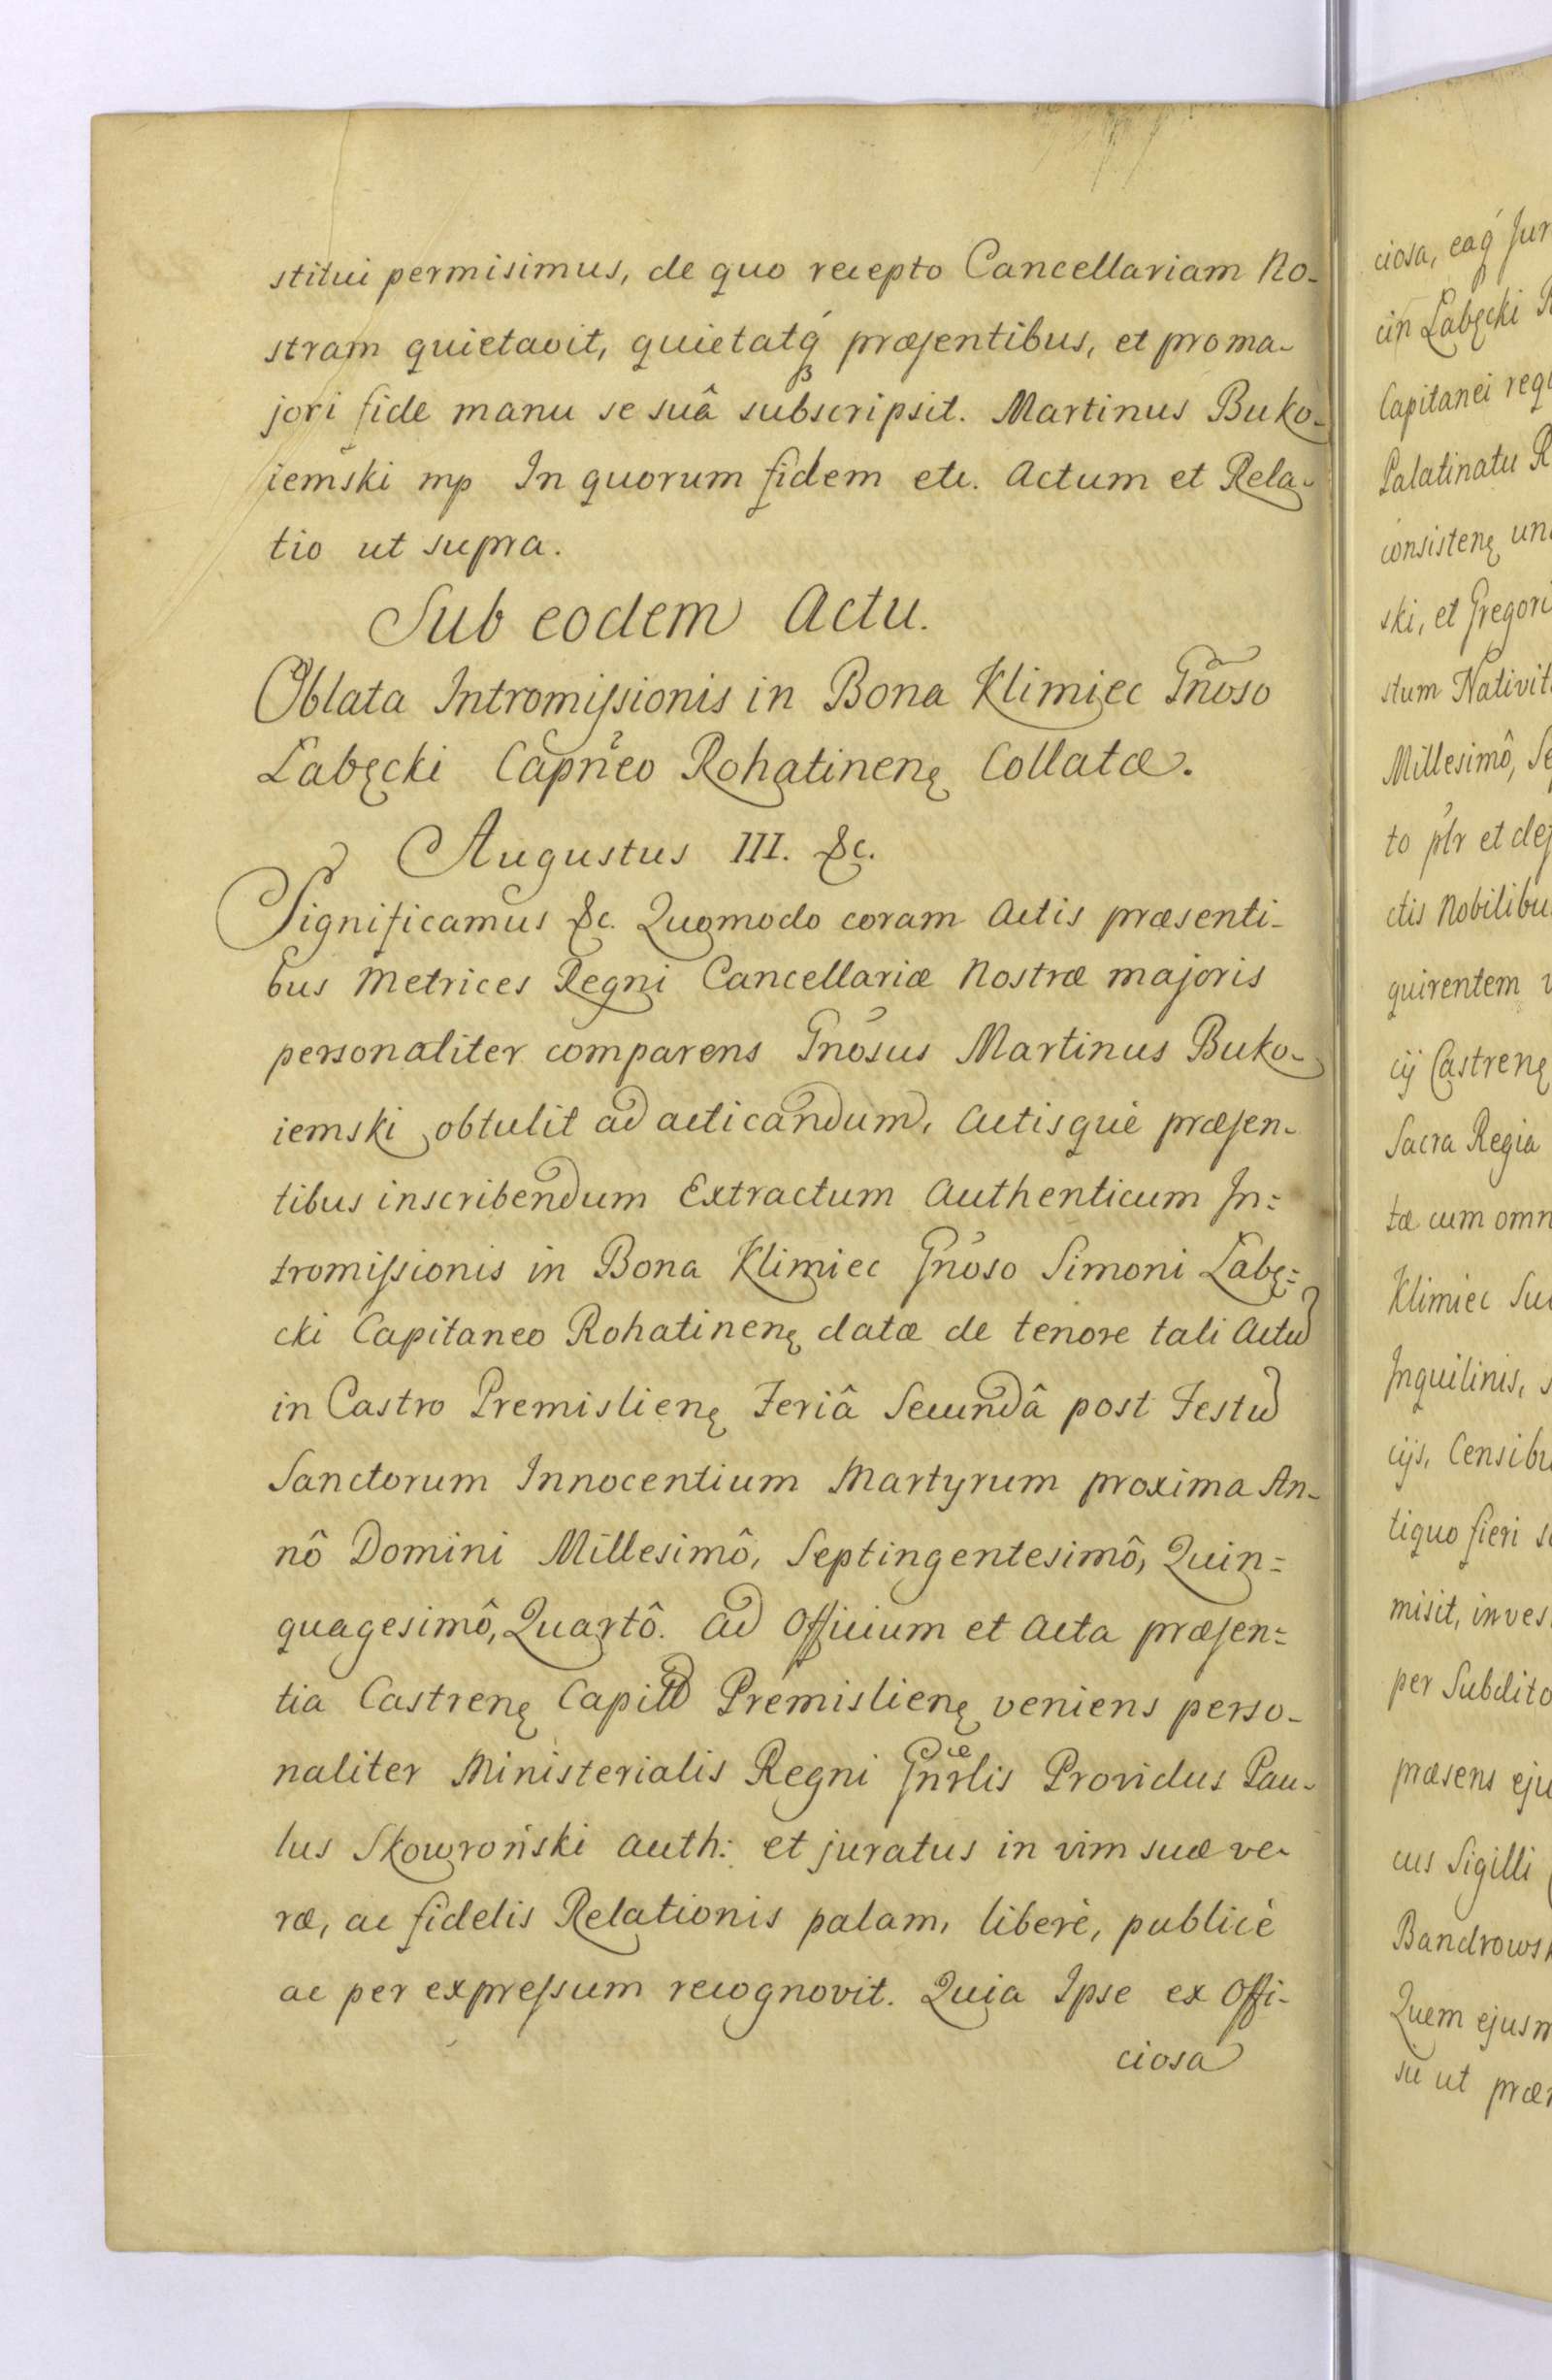 stitui permisimus, de quo recepto Cancellariam No-
stram quietavit, quietatq́ præsentibus, et pro ma-
jori fide manu se suâ subscripsit. Martinus Buko-
iemski mp In quorum fidem etc. Actum et Rela-
tio ut supra.
Sub eodem Actu.
Oblata Intromissionis in Bona Klimiec Gnoso
Łabęcki Capneo Rohatinenę Collatæ.
Augustus III. &c.
Significamus &c. Quomodo coram Actis præsenti-
bus Metrices Regni Cancellariæ Nostræ majoris
personaliter comparens Gnosus Martinus Buko-
iemski obtulit ad acticandum, Actisque præsen-
tibus inscribendum Extractum Authenticum In=
tromissionis in Bona Klimiec Gnoso Simoni Łabę=
cki Capitaneo Rohatinenę datæ de tenore tali Actũ
in Castro Premislienę Feriâ Secundâ post Festũ
Sanctorum Innocentium Martyrum proxima An-
nô Domini Millesimô, Septingentesimô, Quin=
quagesimô, Quartô. Ad Officium et Acta præsen=
tia Castrenę Premislienę veniens perso-
naliter Ministerialis Regni Gnrlis Providus Pau-
lus Skowroński auth: et juratus in vim suæ ve-
ræ, ac fidelis Relationis palam, liberè, publicè
ac per expressum recognovit. Quia Ipse ex Offi-
ciosa
ciosa, eaq́ Jur
cin Łabęcki
Capitanei requ
Palatinatu R
consistenę un
ski, et Gregori
stum Nativit
Millesimô, Se
to plr et de
ctis Nobilibu
quirentem
cij Castrenę
Sacra Regia
tæ cum omn
Klimiec Su
Inquilinis, s
cijs, Censibu
tiquo fieri s
misit, inves
per Subdito
præsens eju
cus Sigilli
Bandrowsk
Quem ejusm
su ut præ